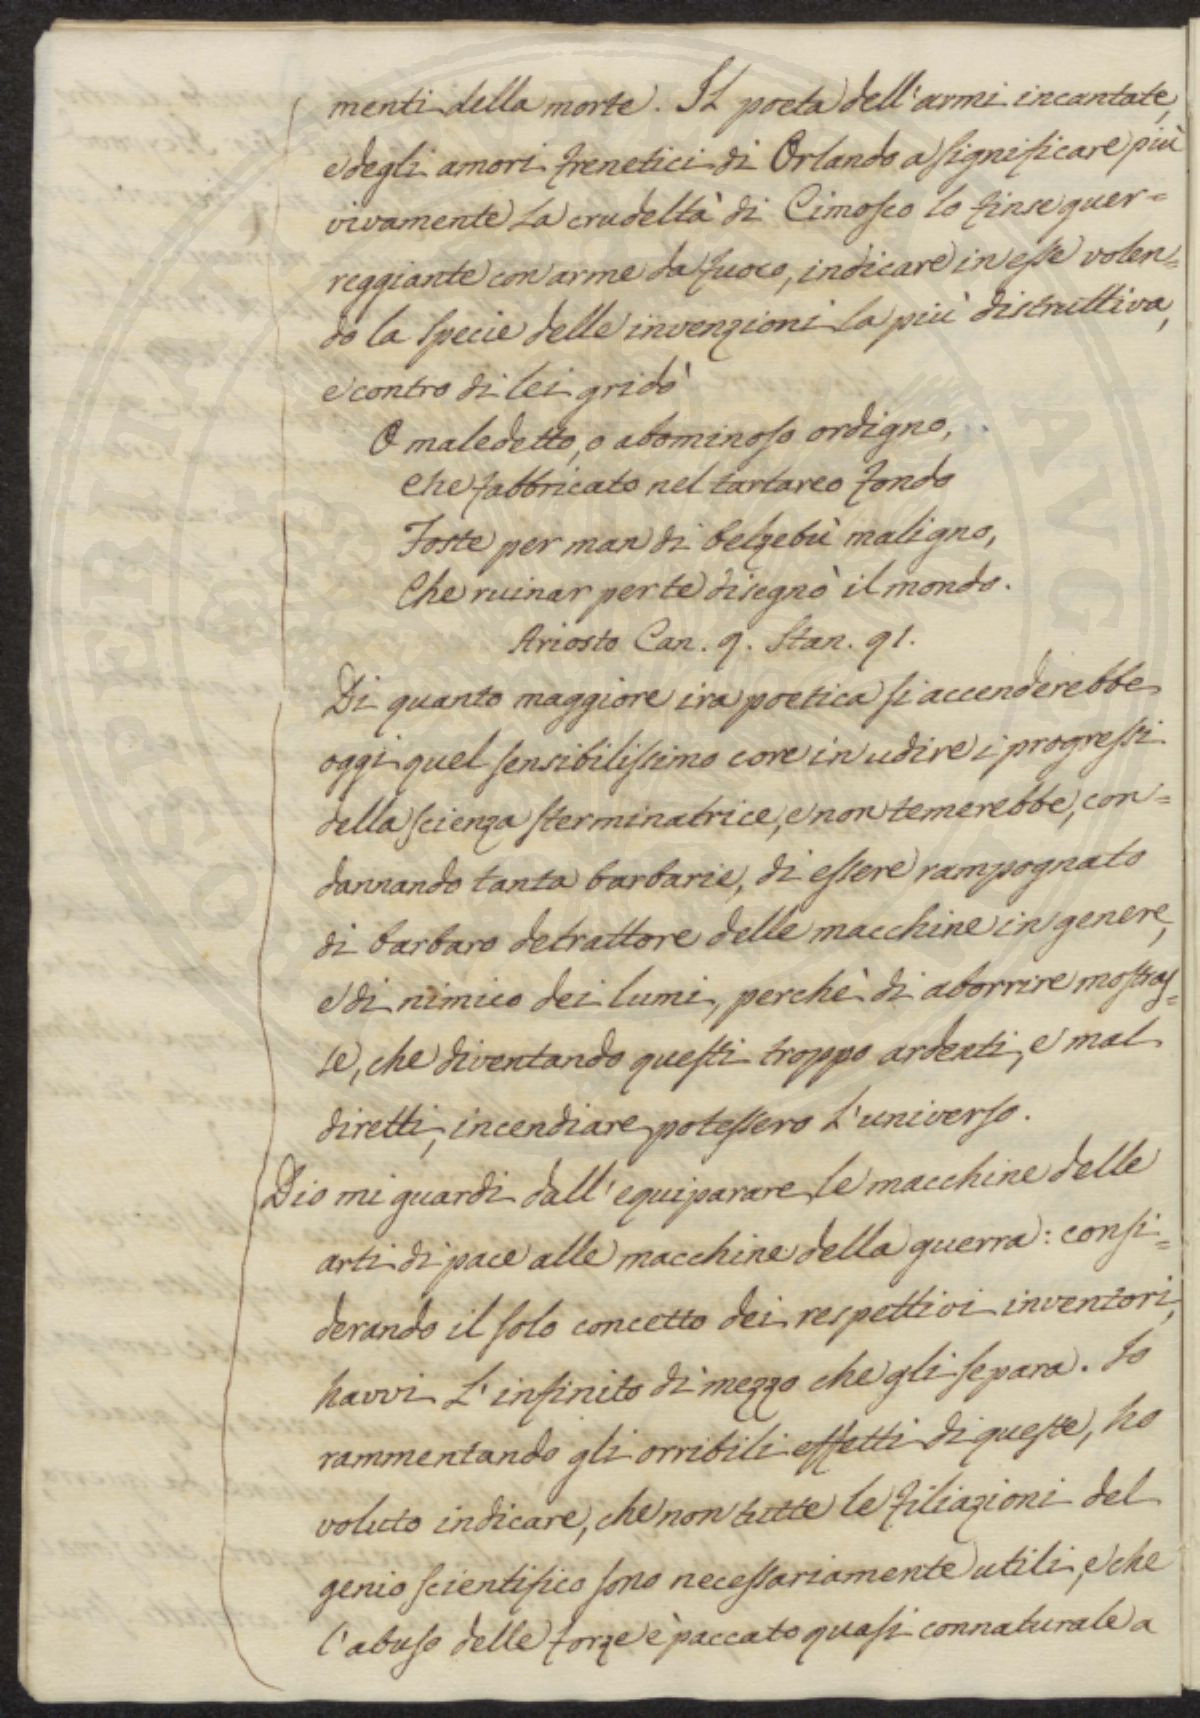 menti della morte. Il poeta dell'armi incantate,
e degli amori frenetici di Orlando a significare più
vivamente la crudeltà di Cimosco lo finse guer=
reggiante con arme da fuoco, indicare in esse volen=
do la specie delle invenzioni la più distruttiva,
e contro di lei gridò
O maledetto, o abominoso ordigno,
Che fabbricato nel tartareo fondo
Foste per man di belzebù maligno,
Che ruinar per te disegnò il mondo.
Ariosto Can. 9. Stan. 91.
Di quanto maggiore ira poetica si accenderebbe
oggi quel sensibilissimo core in udire i progressi
della scienza sterminatrice, e non temerebbe, con=
dannando tanta barbarie, di essere rampognato
di barbaro detrattore delle macchine in genere,
e di nimico dei lumi, perchè di aborrire mostras=
se, che diventando questi troppo ardenti, e mal
diretti, incendiare potessero l'universo.
Dio mi guardi dall'equiparare le macchine delle
arti di pace alle macchine della guerra: consi=
derando il solo concetto dei respettivi inventori,
havvi l'infinito di mezzo che gli separa. Io
rammentando gli orribili effetti di queste, ho
voluto indicare, che non tutte le filiazioni del
genio scientifico sono necessariamente utili, e che
l'abuso delle forze è paccato quasi connaturale a